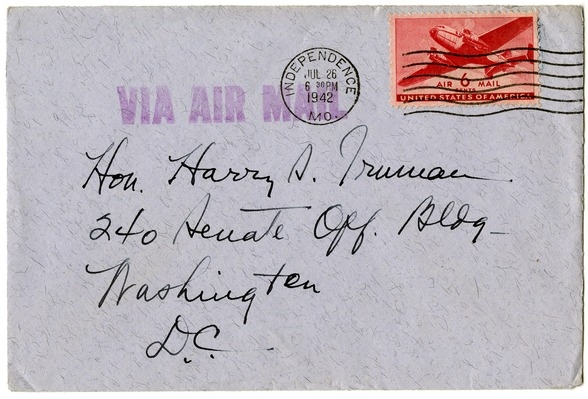 INDEPENDENCE
JUL 26
6 30 PM
1942
MO.
6
AIR MAIL
CENTS
UNITED STATES OF AMERICA
VIA AIR MAIL
Hon. Harry S. Truman
240 Senate Off. Bldg-
Washington
D.C.